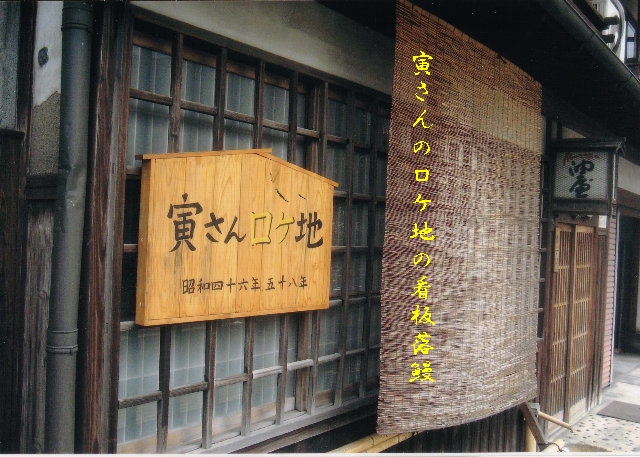 寅さんロケ地
昭和四十六年、五十八年
寅さんのロケ地の看板落鰻